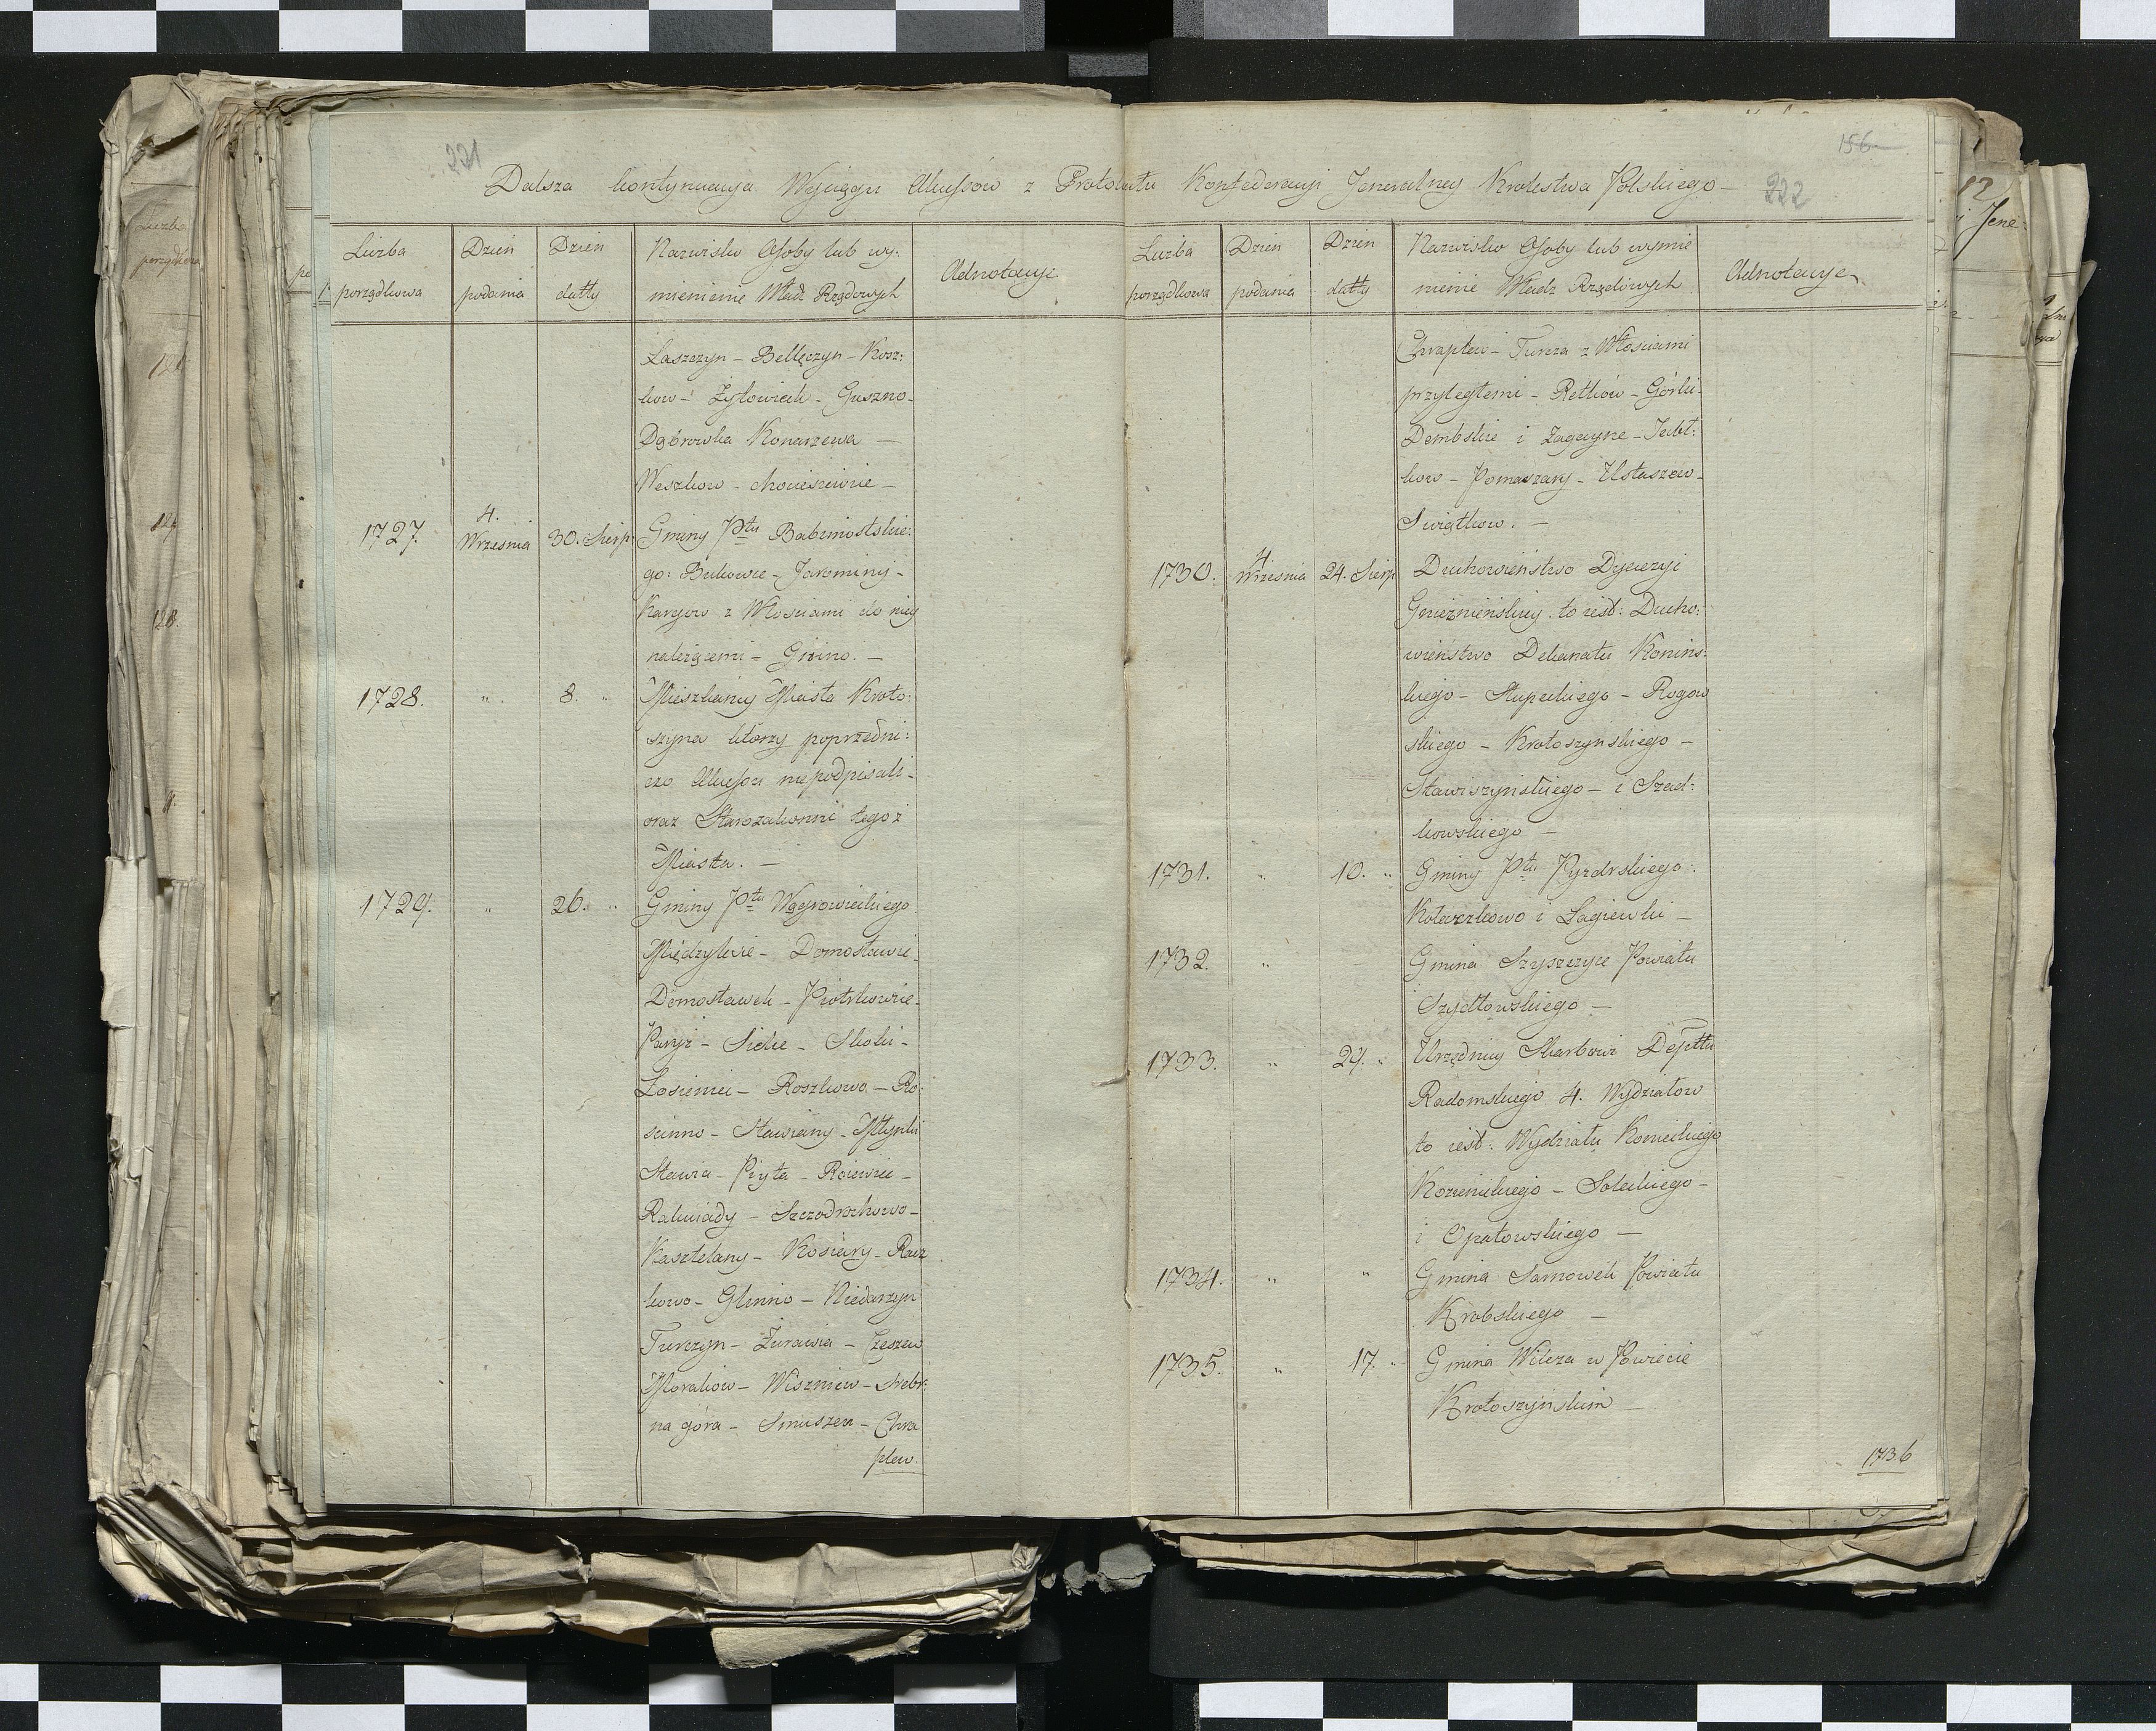 221
156
Dalsza kontynuacya Wyciągu Akcessow z Protokułu Konfederacyi Jeneralney Krolestwa Polskiego –
222
Liczba porządkowa
Dzień podania
Dzień datty
Nazwisko Osoby lub wy:
mienienie Władz Rządowych
Adnotacye
Łaszczyn – Bełęczyn – Kosz:
kow – Żytowieck – Guszno –
Dąbrowka Konarzewa –
Weszkow – Chocieszewie –
1727. 4. Wrzesnia 30. Sierp. Gminy Ptu Babimostskie:
go: Bukowie – Jarominy –
Kargow z Włosciami do niey
należącemi – Gnino. –
1728. " 8. " Mieszkańcy Miasta Kroto:
szyna ktorzy poprzedni:
czo Akcessu niepodpisali –
oraz Starozakonni tegoż
Miasta. –
1729. " 26. " Gminy Ptu Wągrowieckiego
Międzylesie – Domosławie –
Domosławek – Piotrkowice –
Paryż – Siekie – Skoki –
Łosiniec – Roszkowo – Ro:
scinno – Sławiany – Młynki
Sławia – Pryta – Roiewiec –
Rakuiady – Szczodrochowo –
Kasztelany – Kosiary – Racz
kowo – Glinno – Niedarzyn
Turczyn – Żurawia – Czeszew
Morakow – Wiszniew – Srebr:
na góra – Smuszew – Chra
plew.
Liczba porządkowa
Dzień podania
Dzień datty
Nazwisko Osoby lub wymie
nienie Władz Rządowych
Adnotacye
Chraplew – Turza z Włosciami
przyległemi – Retkow – Górki –
Dembskie i Zagayne – Jabł:
kow – Pomarzany – Ustaszew –
Swiątkow. –
1730. 4. Wrzesnia 24. Sierp Duchowieństwo Dyecezyi
Gnieznieńskiey to iest: Ducho:
wieństwo Dekanatu Konins:
kiego – Słupeckiego – Rogow
skiego – Krotoszynskiego –
Stawiszynskiego – i Szad:
kowskiego –
1731. " 10. " Gminy Ptu Pyzdrskiego:
Kołaczkowo i Łagiewki –
1732. " Gmina Szyszczyce Powiatu
Szydłowskiego –
1733. " 24. " Urzędnicy Skarbowi Depttu
Radomskiego 4. Wydziałow
to iest: Wydziału Konieckiego
Kozienickiego – Soleckiego –
i Opatowskiego –
1734. " " Gmina Sarnowek Powiatu
Krobskiego –
1735. " 17. " Gmina Wilcza w Powiecie
Krotoszynskim –
1736